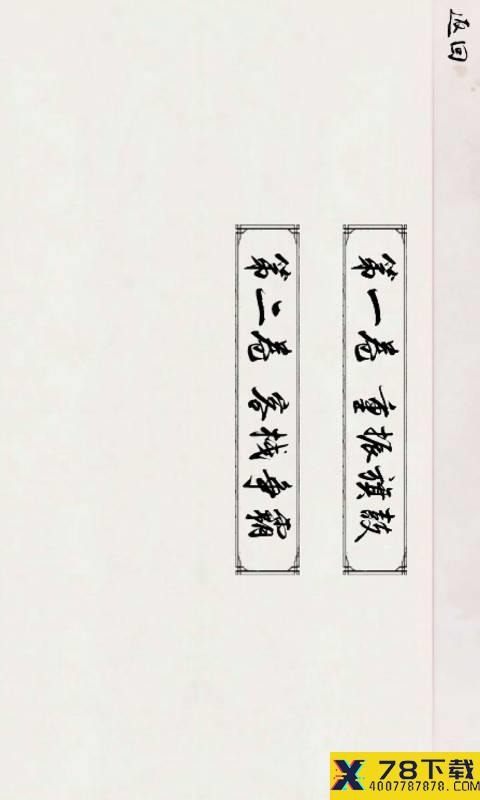 返回
第一卷 重振旗鼓
第二卷 客栈争霸
78下载
4007787878.COM